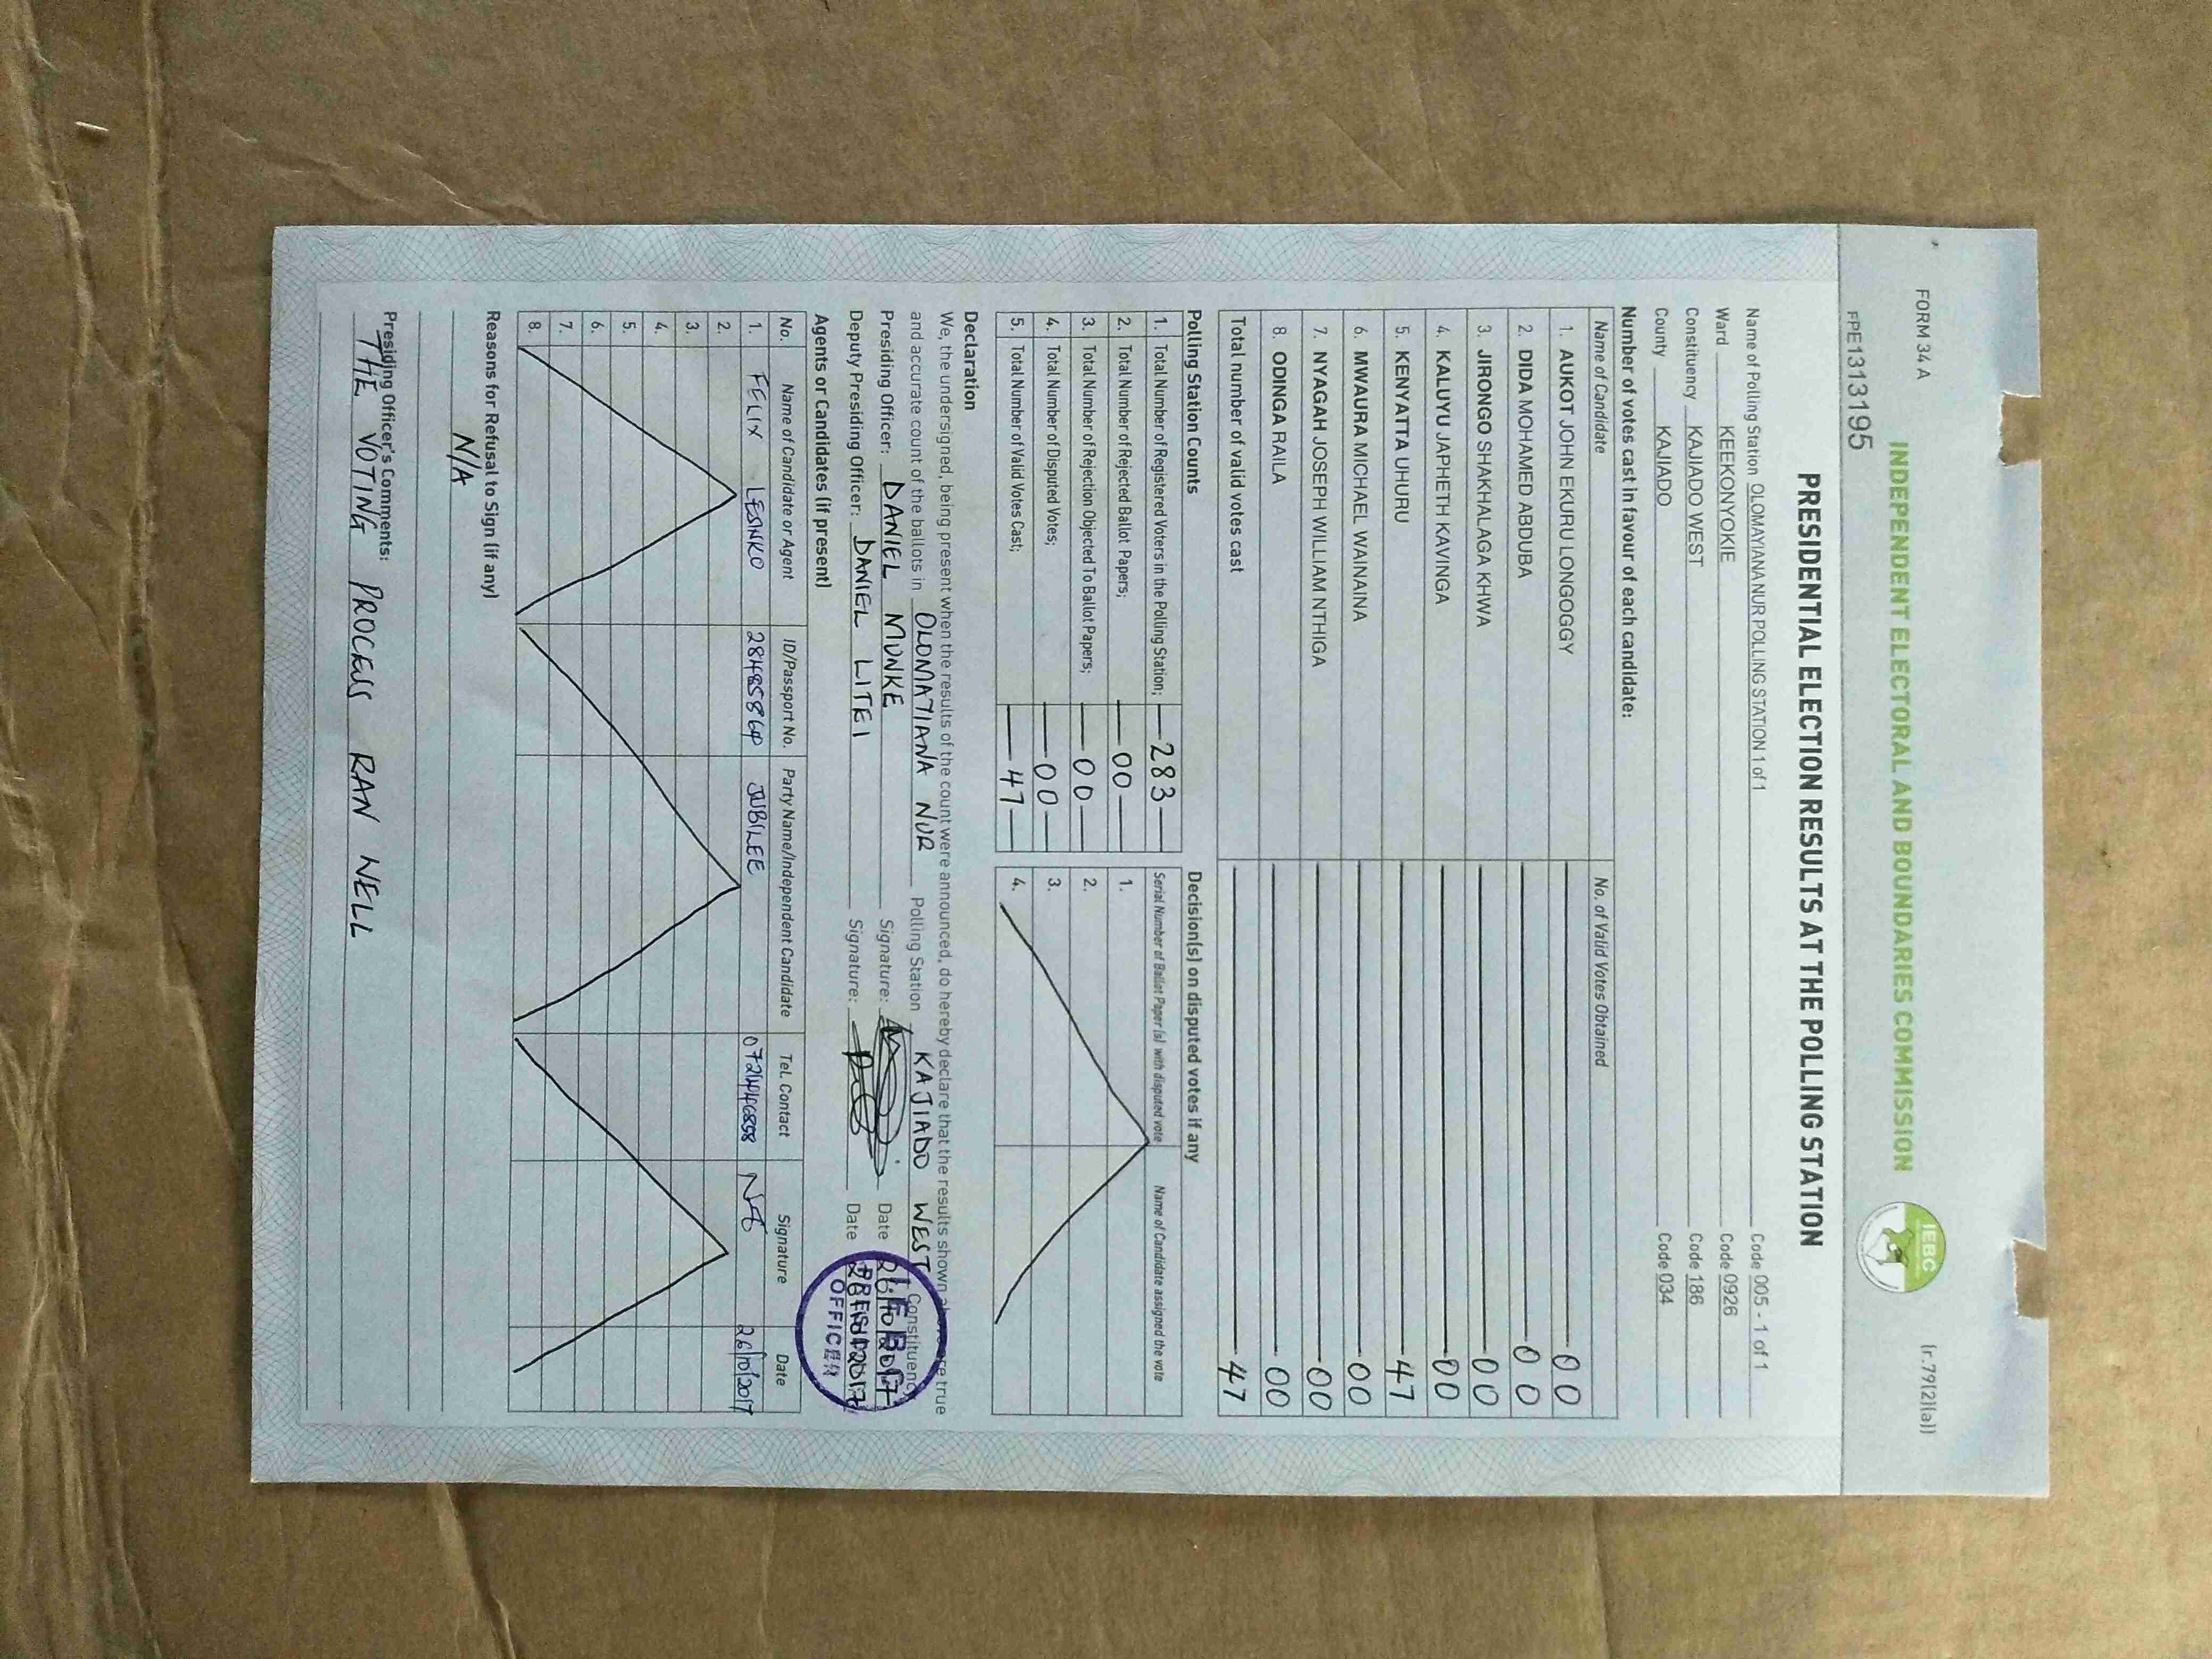 FORM 34 A
(r.79(2)(a))
INDEPENDENT ELECTORAL AND BOUNDARIES COMMISSION
IEBC
FPE131195
PRESIDENTIAL ELECTION RESULTS AT THE POLLING STATION
Name of Polling Station OLOMAYIANA NUR POLLING STATION 1 of 1 Code 005 - 1 of 1
Ward KEEKONYOKIE Code 0926
Constituency KAJIADO WEST Code 186
County KAJIADO Code 034
Number of votes cast in favour of each candidate:
Name of Candidate No. of Valid Votes Obtained
1. AUKOT JOHN EKURU LONGOGGY 00
2. DIDA MOHAMED ABDUBA 00
3. JIRONGO SHAKHALAGA KHWA 00
4. KALUYU JAPHETH KAVINGA 00
5. KENYATTA UHURU 47
6. MWAURA MICHAEL WAINAINA 00
7. NYAGAH JOSEPH WILLIAM NTHIGA 00
8. ODINGA RAILA 00
Total number of valid votes cast 47
Polling Station Counts
1. Total Number of Registered Voters in the Polling Station; 283
2. Total Number of Rejected Ballot Papers; 00
3. Total Number of Rejection Objected To Ballot Papers; 00
4. Total Number of Disputed Votes; 00
5. Total Number of Valid Votes Cast; 47
Decision(s) on disputed votes if any
Serial Number of Ballot Paper (s) with disputed vote Name of Candidate assigned the vote
1.
2.
3.
4.
Declaration
We, the undersigned, being present when the results of the count were announced, do hereby declare that the results shown above are true
and accurate count of the ballots in OLOMATIANA NUR Polling Station KAJIADO WEST Constituency
Presiding Officer: DANIEL MUNKE Signature: Date 26/10/2017
Deputy Presiding Officer: DANIEL LITEI Signature: Date 26/10/2017
IEBC
PRESIDING
OFFICER
Agents or Candidates (if present)
No. Name of Candidate or Agent ID/Passport No. Party Name/Independent Candidate Tel. Contact Signature Date
1. FELIX LESNKO JUBILEE 26/10/2017
2.
3.
4.
5.
6.
7.
8.
Reasons for Refusal to Sign (if any)
N/A
Presiding Officer's Comments:
THE VOTING PROCESS RAN WELL